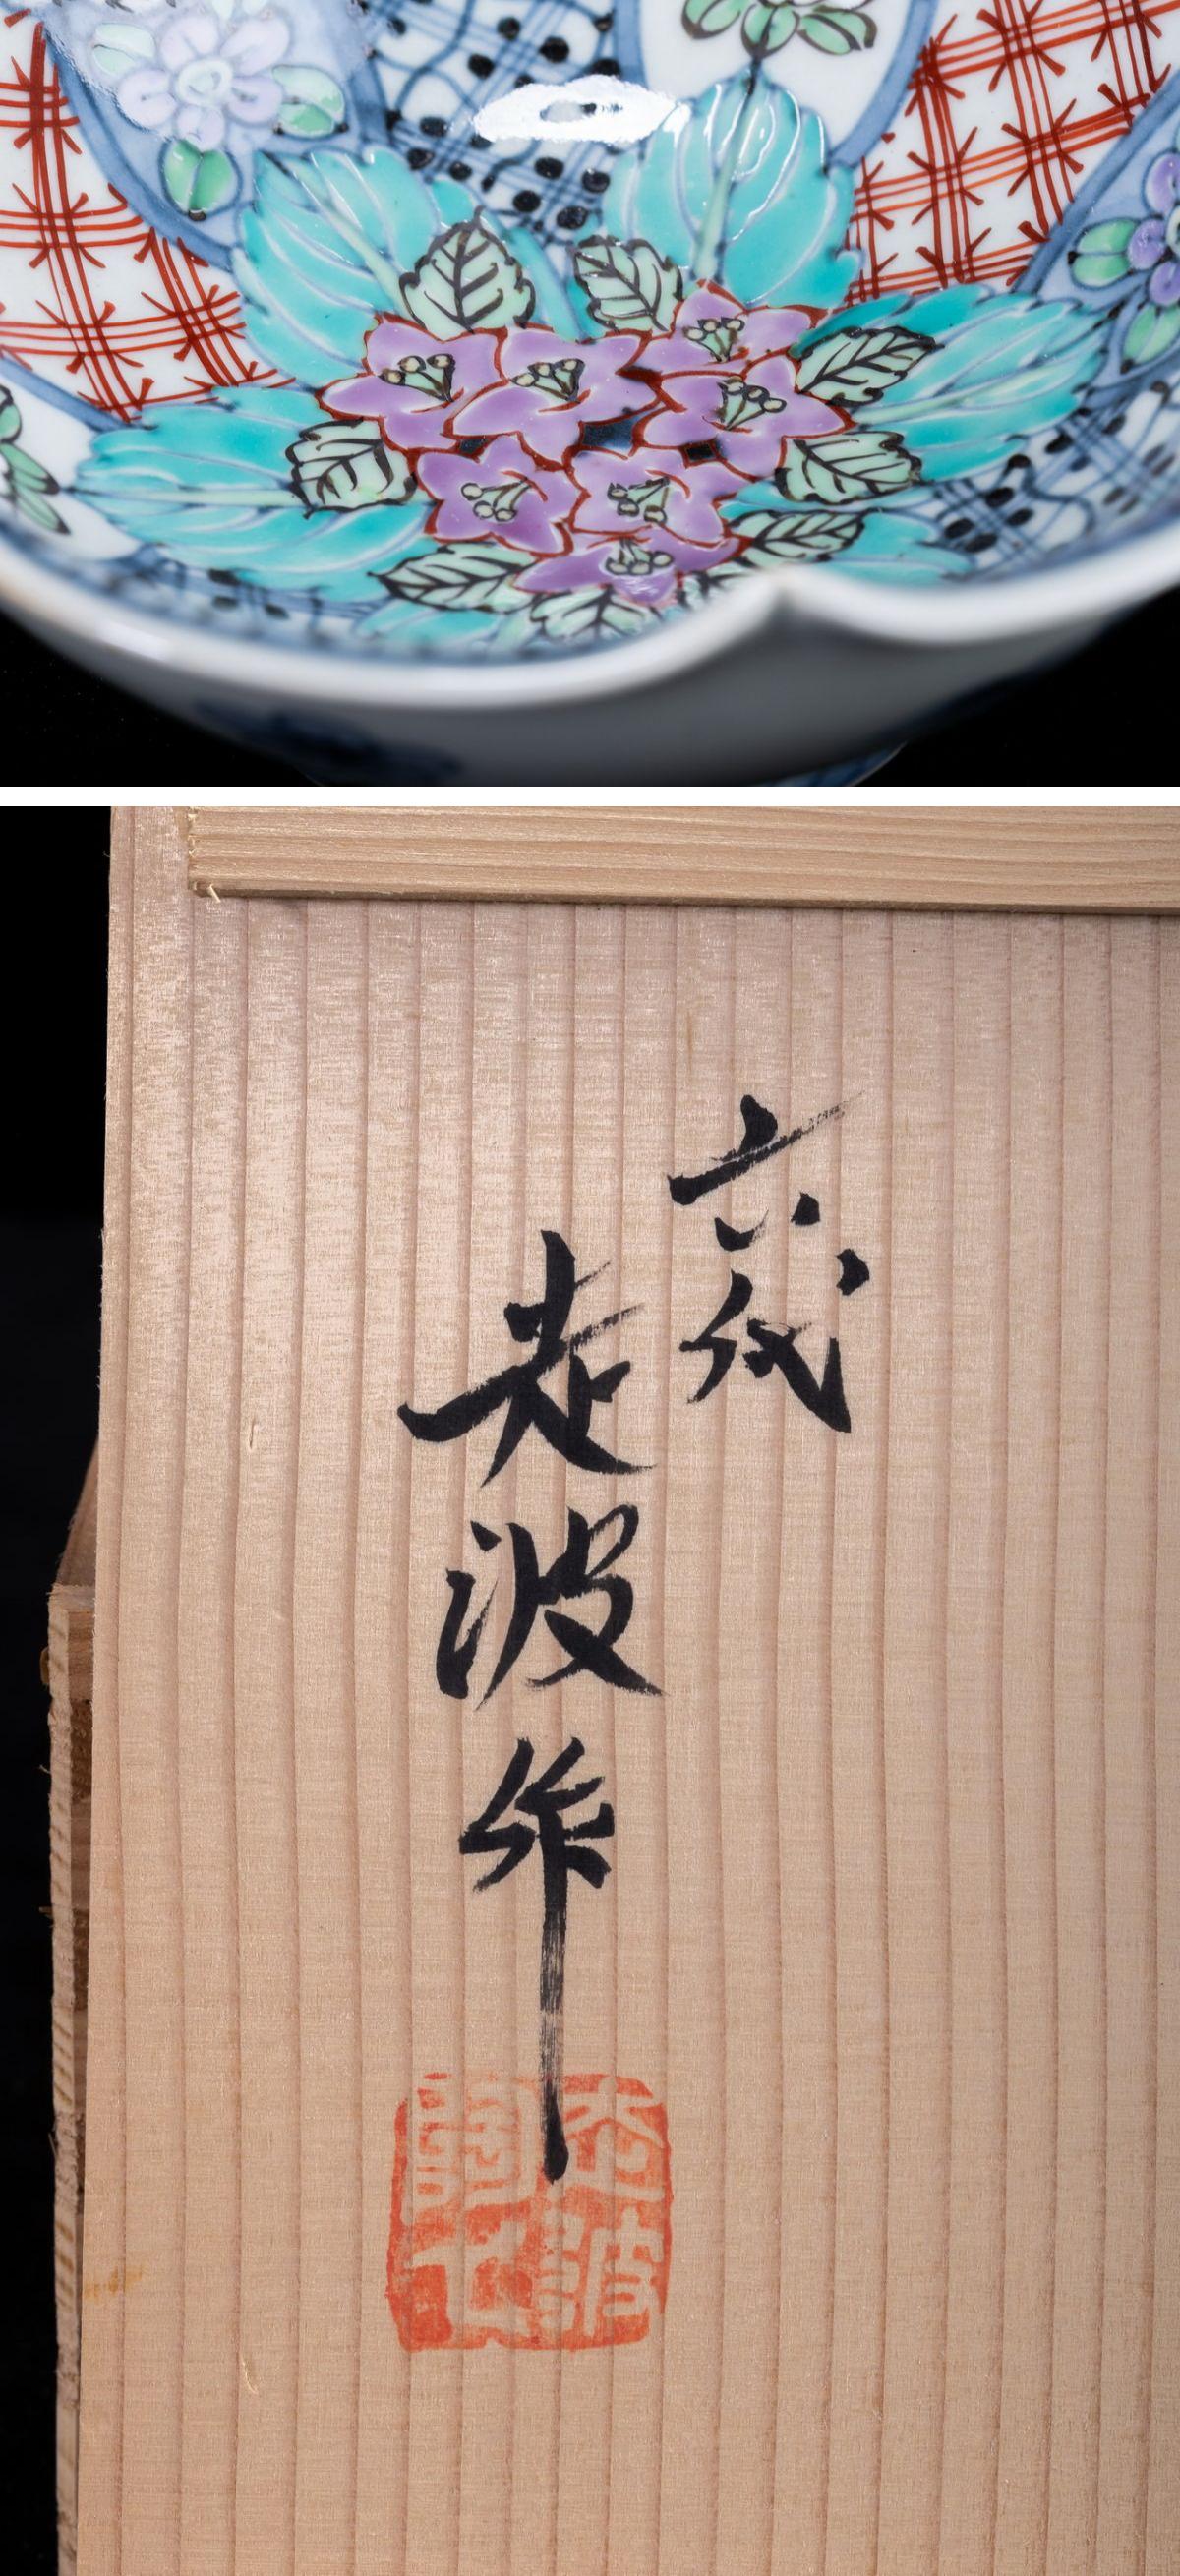 六代
走波作